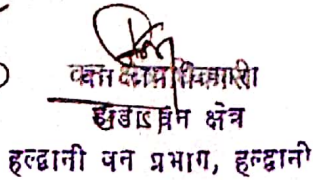 वन क्षेत्राधिकारी
डाडा वन क्षेत्र
हल्द्वानी वन प्रभाग, हल्द्वानी